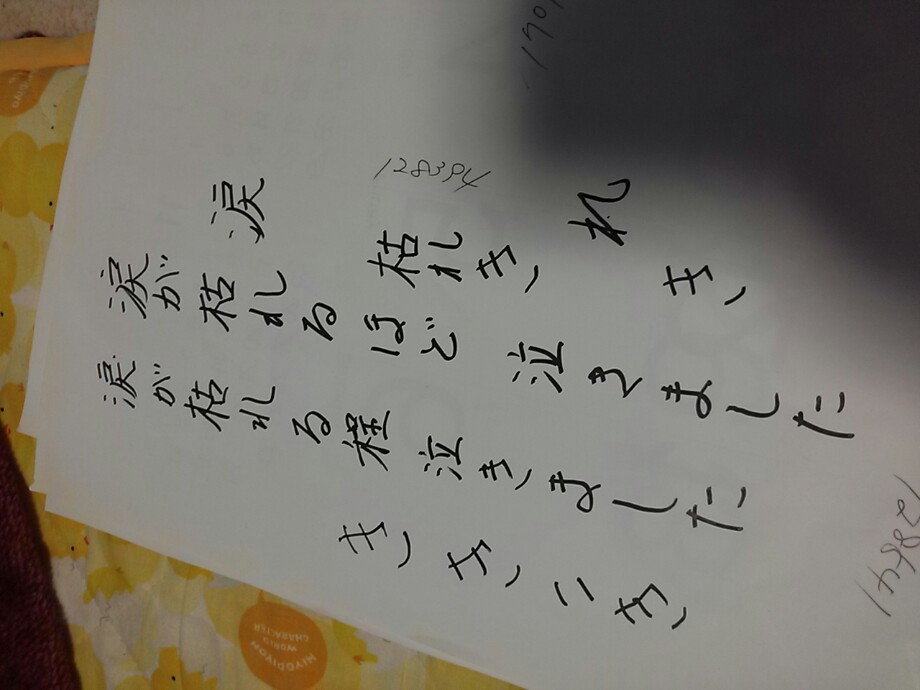 涙
枯れき
れ
き
涙が枯れるほど泣きました
涙が枯れる程泣きました
き
128394
HIYODIYOM
WORLD
CHARACTER